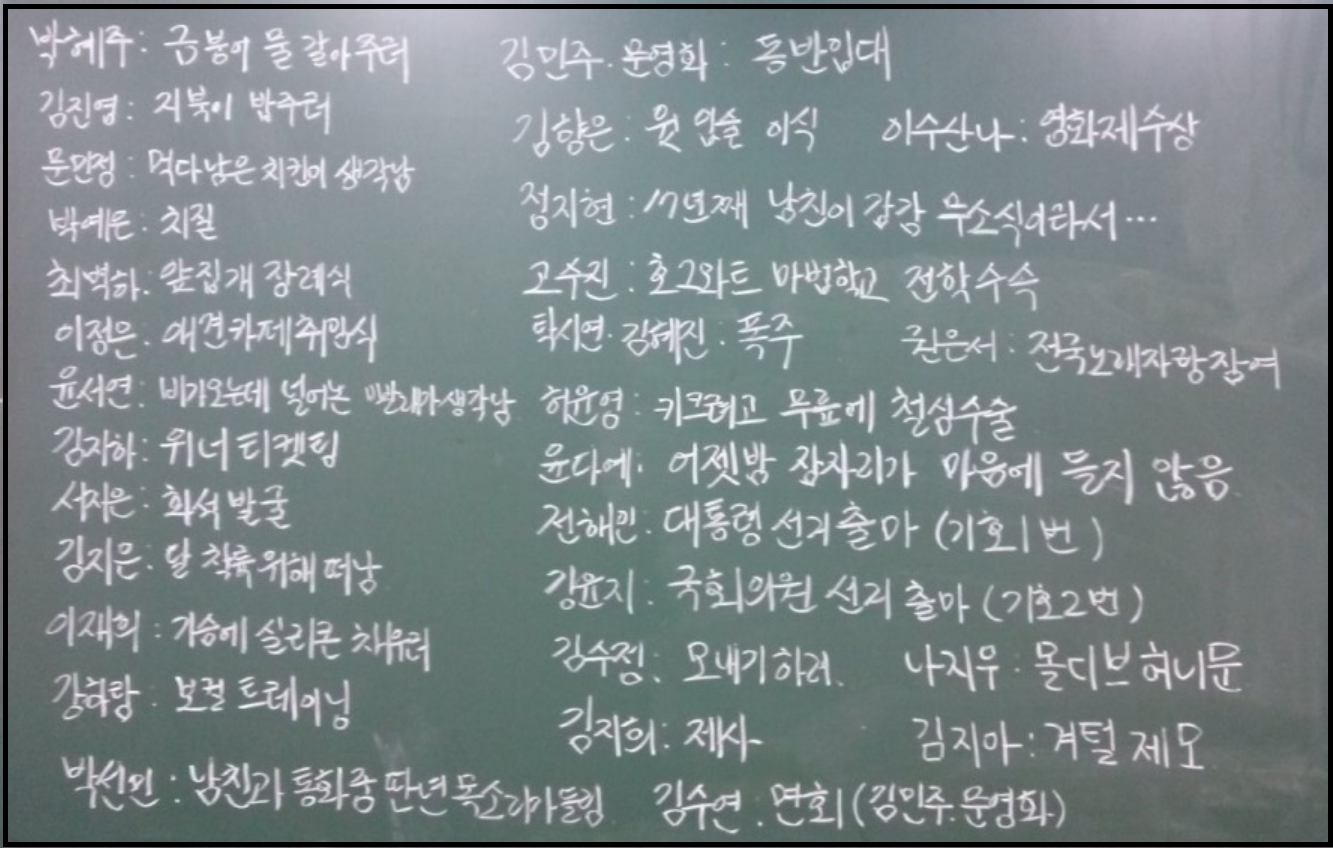 박혜주: 금붕어 물 갈아주러
김진영: 거북이 밥주러
문민정: 먹다남은 치킨이 생각남
박예은: 치질
최벽하: 앞집개 장례식
이정은: 애견카페취임식
윤서연: 비가오는데 널어논 빨래가생각남
김자하: 위너티켓팅
서지은: 화석발굴
김지은: 달 착륙위해 떠남
이재희: 가슴에 실리콘 채우러
강하람: 보컬트레이닝
박선민: 남친과 통화중 딴년목소리가들림
김민주.문영화: 동반입대
김향은: 윗 입술 이식
이수산나: 영화제수상
정지현: 17년째 남친이 감감 무소식이라서…
고수진: 호그와트 마법학교 전학수속
탁시연.김혜진: 폭주
권은서: 전국노래자랑참여
허윤영: 키크려고 무릎에 철심수술
윤다예: 어젯밤 잠자리가 마음에 들지 않음
전해민: 대통령선거출마 (기호1번)
김윤지: 국회의원 선거 출마 (기호2번)
김수정: 모내기하러.
나지우: 몰디브허니문
김지희: 제사
김지아: 겨털제모
김수연: 면회(김민주.문영화)